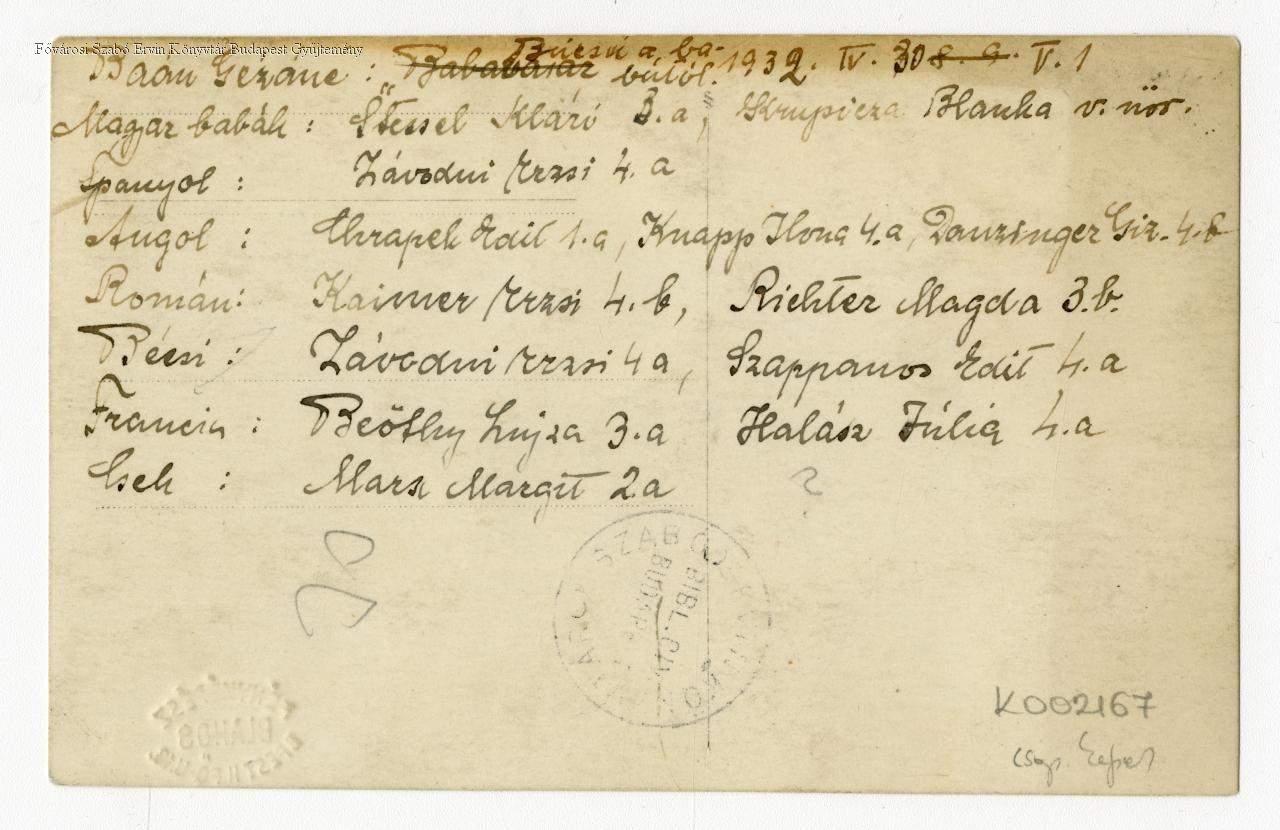 Fővárosi Szabó Ervin Könyvtár Budapest Gyűjtemény
Baán Gézáné : Bababazár Búcsú a ba-
bától. 1932. IV. 30 8. 9. V. 1
Magyar babák : Stessel Klári 3. a, Krupicza Blanka v. növ.
Spanyol : Závodni Erzsi 4. a
Angol : Chrapek Edit 1. a, Knapp Ilona 4. a, Danzinger Giz. 4. b
Román: Kaimer Erzsi 4. b, Richter Magda 3. b.
Bécsi : Závodni Erzsi 4 a, Szappanos Edit 4. a
Francia : Beöthy Lujza 3. a Halász Júlia 4. a
Cseh : Marx Margit 2 a ?
SZABÓ ERVIN
BIBL. CIV.
BUDAP
K002167